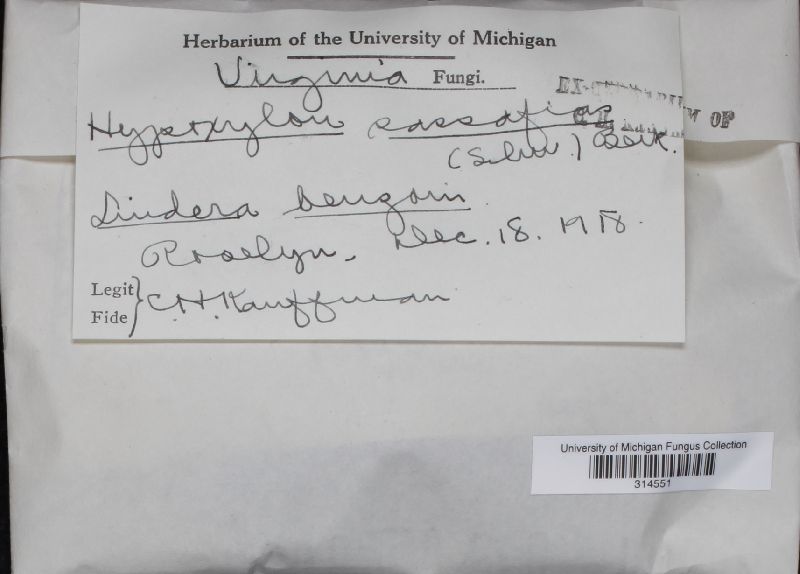 Herbarium of the University of Michigan
Virginia Fungi.
EX-HERBARIUM OF
Hypoxylon sassafras
(Schw.) Berk.
Lindera benzoin
Rosslyn. Dec. 18. 1918.
Legit
Fide
C.H. Kauffman
University of Michigan Fungus Collection
314551